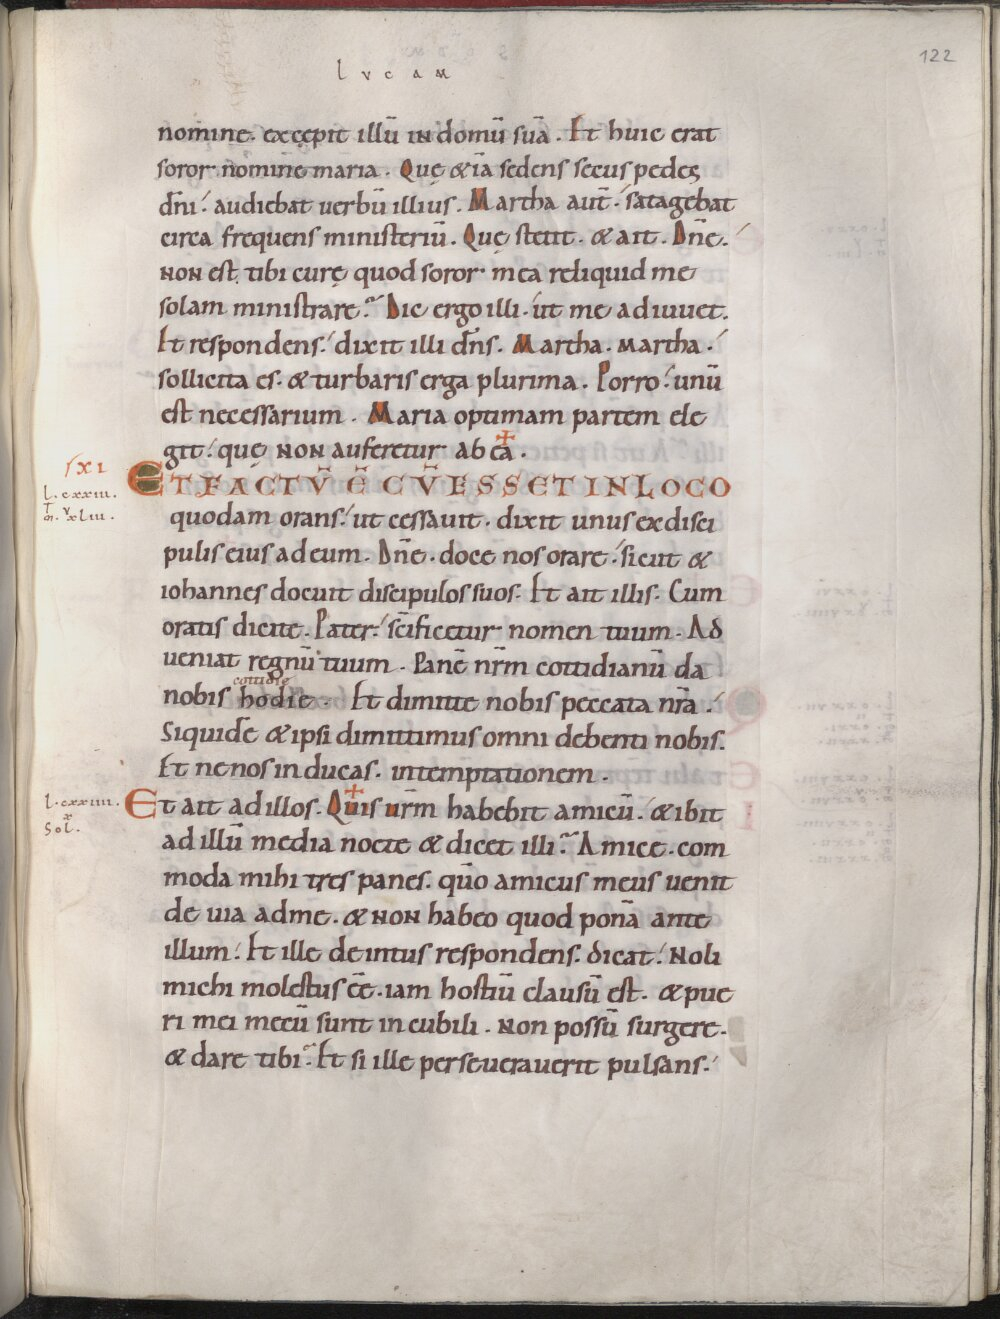 lvcam
122
nomine. excępit illū in domū suā. Et huic erat
soror nomine maria. Quę &iā sedens secus pedes
dn̄i. audiebat verbū illius. Martha aut̄. satagebat
circa frequens ministeriū. Quę stetit. & ait. Dn̄e.
non est tibi curę quod soror mea reliquid me
solam ministrare. Dic ergo illi. ut me adiuuet.
Et respondens. dixit illi dn̄s. Martha. martha.
sollicita es. & turbaris erga plurima. Porro. unū
est necessarium. Maria optimam partem ele
git. quę non auferetur ab eā.
XI
ET FACTV̄ Ē CV̄ ESSET IN LOCO
l. cxxiii.
m. xliii.
quodam orans. ut cessauit. dixit unus ex disci
pulis eius ad eum. Dn̄e. doce nos orare. sicut &
iohannes docuit discipulos suos. Et ait illis. Cum
oratis dicite. Pater. sc̄ificetur nomen tuum. Ad
ueniat regnū tuum. Panē nr̄m cottidianū da
cottidie
nobis hodie. Et dimitte nobis peccata nr̄a.
Siquidē & ipsi dimittimus omni debenti nobis.
Et ne nos inducas. in temptationem.
l. cxxiiii.
Sol.
Et ait ad illos. Quis ur̄m habebit amicū. & ibit
ad illū media nocte & dicet illi. Amice. com
moda mihi tres panes. qūo amicus meus uenit
de uia ad me. & non habeo quod ponā ante
illum. Et ille deintus respondens. dicat. Noli
michi molestus eē. iam hostiū clausū est. & pue
ri mei mecū sunt in cubili. Non possū surgere.
& dare tibi. Et si ille perseuerauerit pulsans.